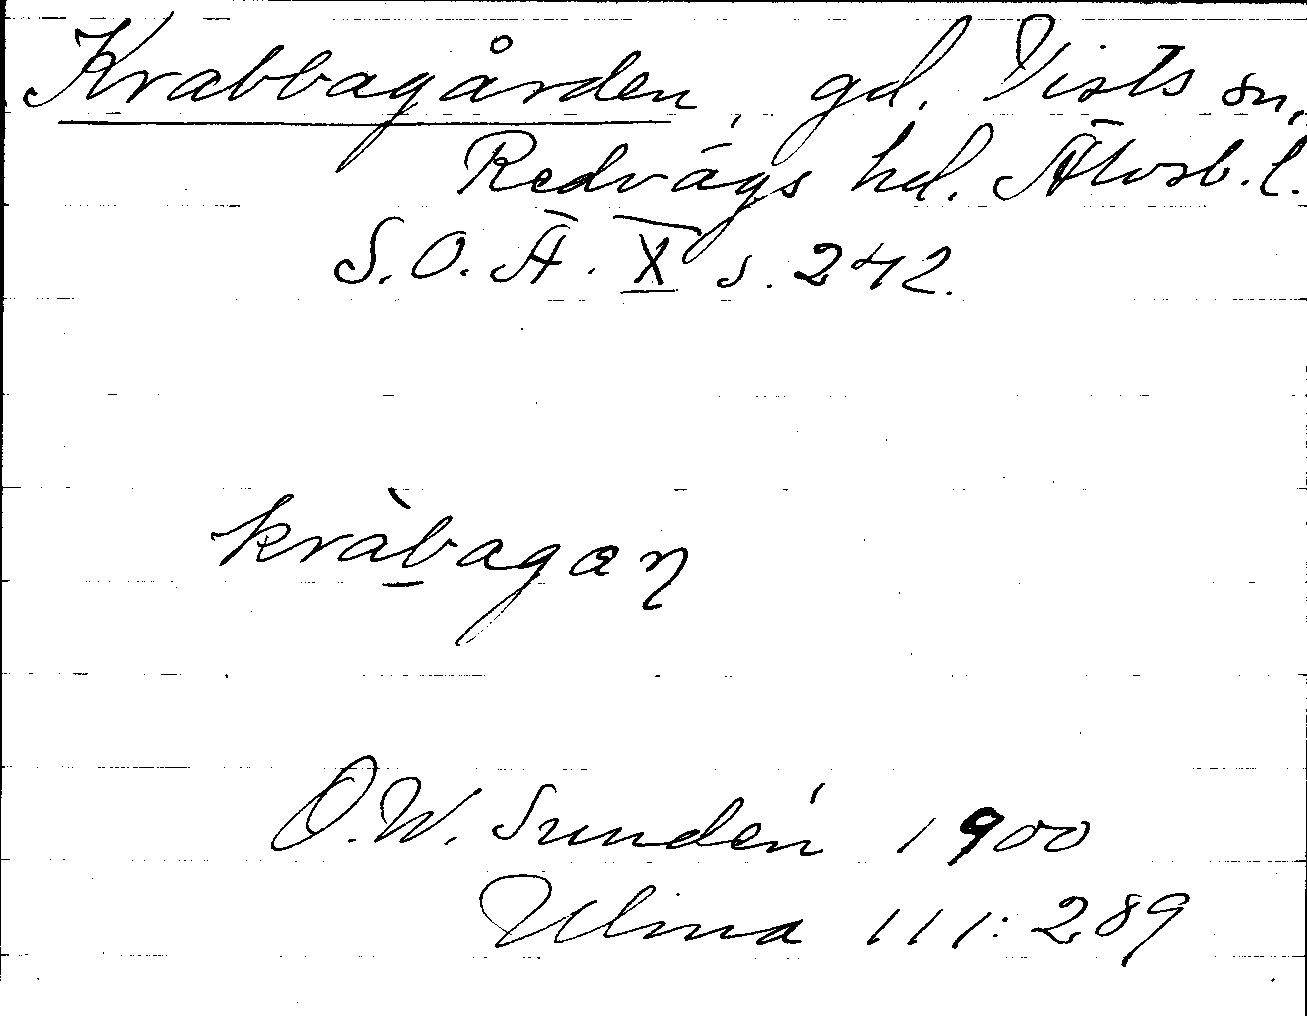 Krabbagården, gd. Vists sn,
Redvägs hd. Älvsb. l.
S.O.Ä. X s. 242.
kràbagaɳ
O.W. Sundén 1900
Ulma 111:289